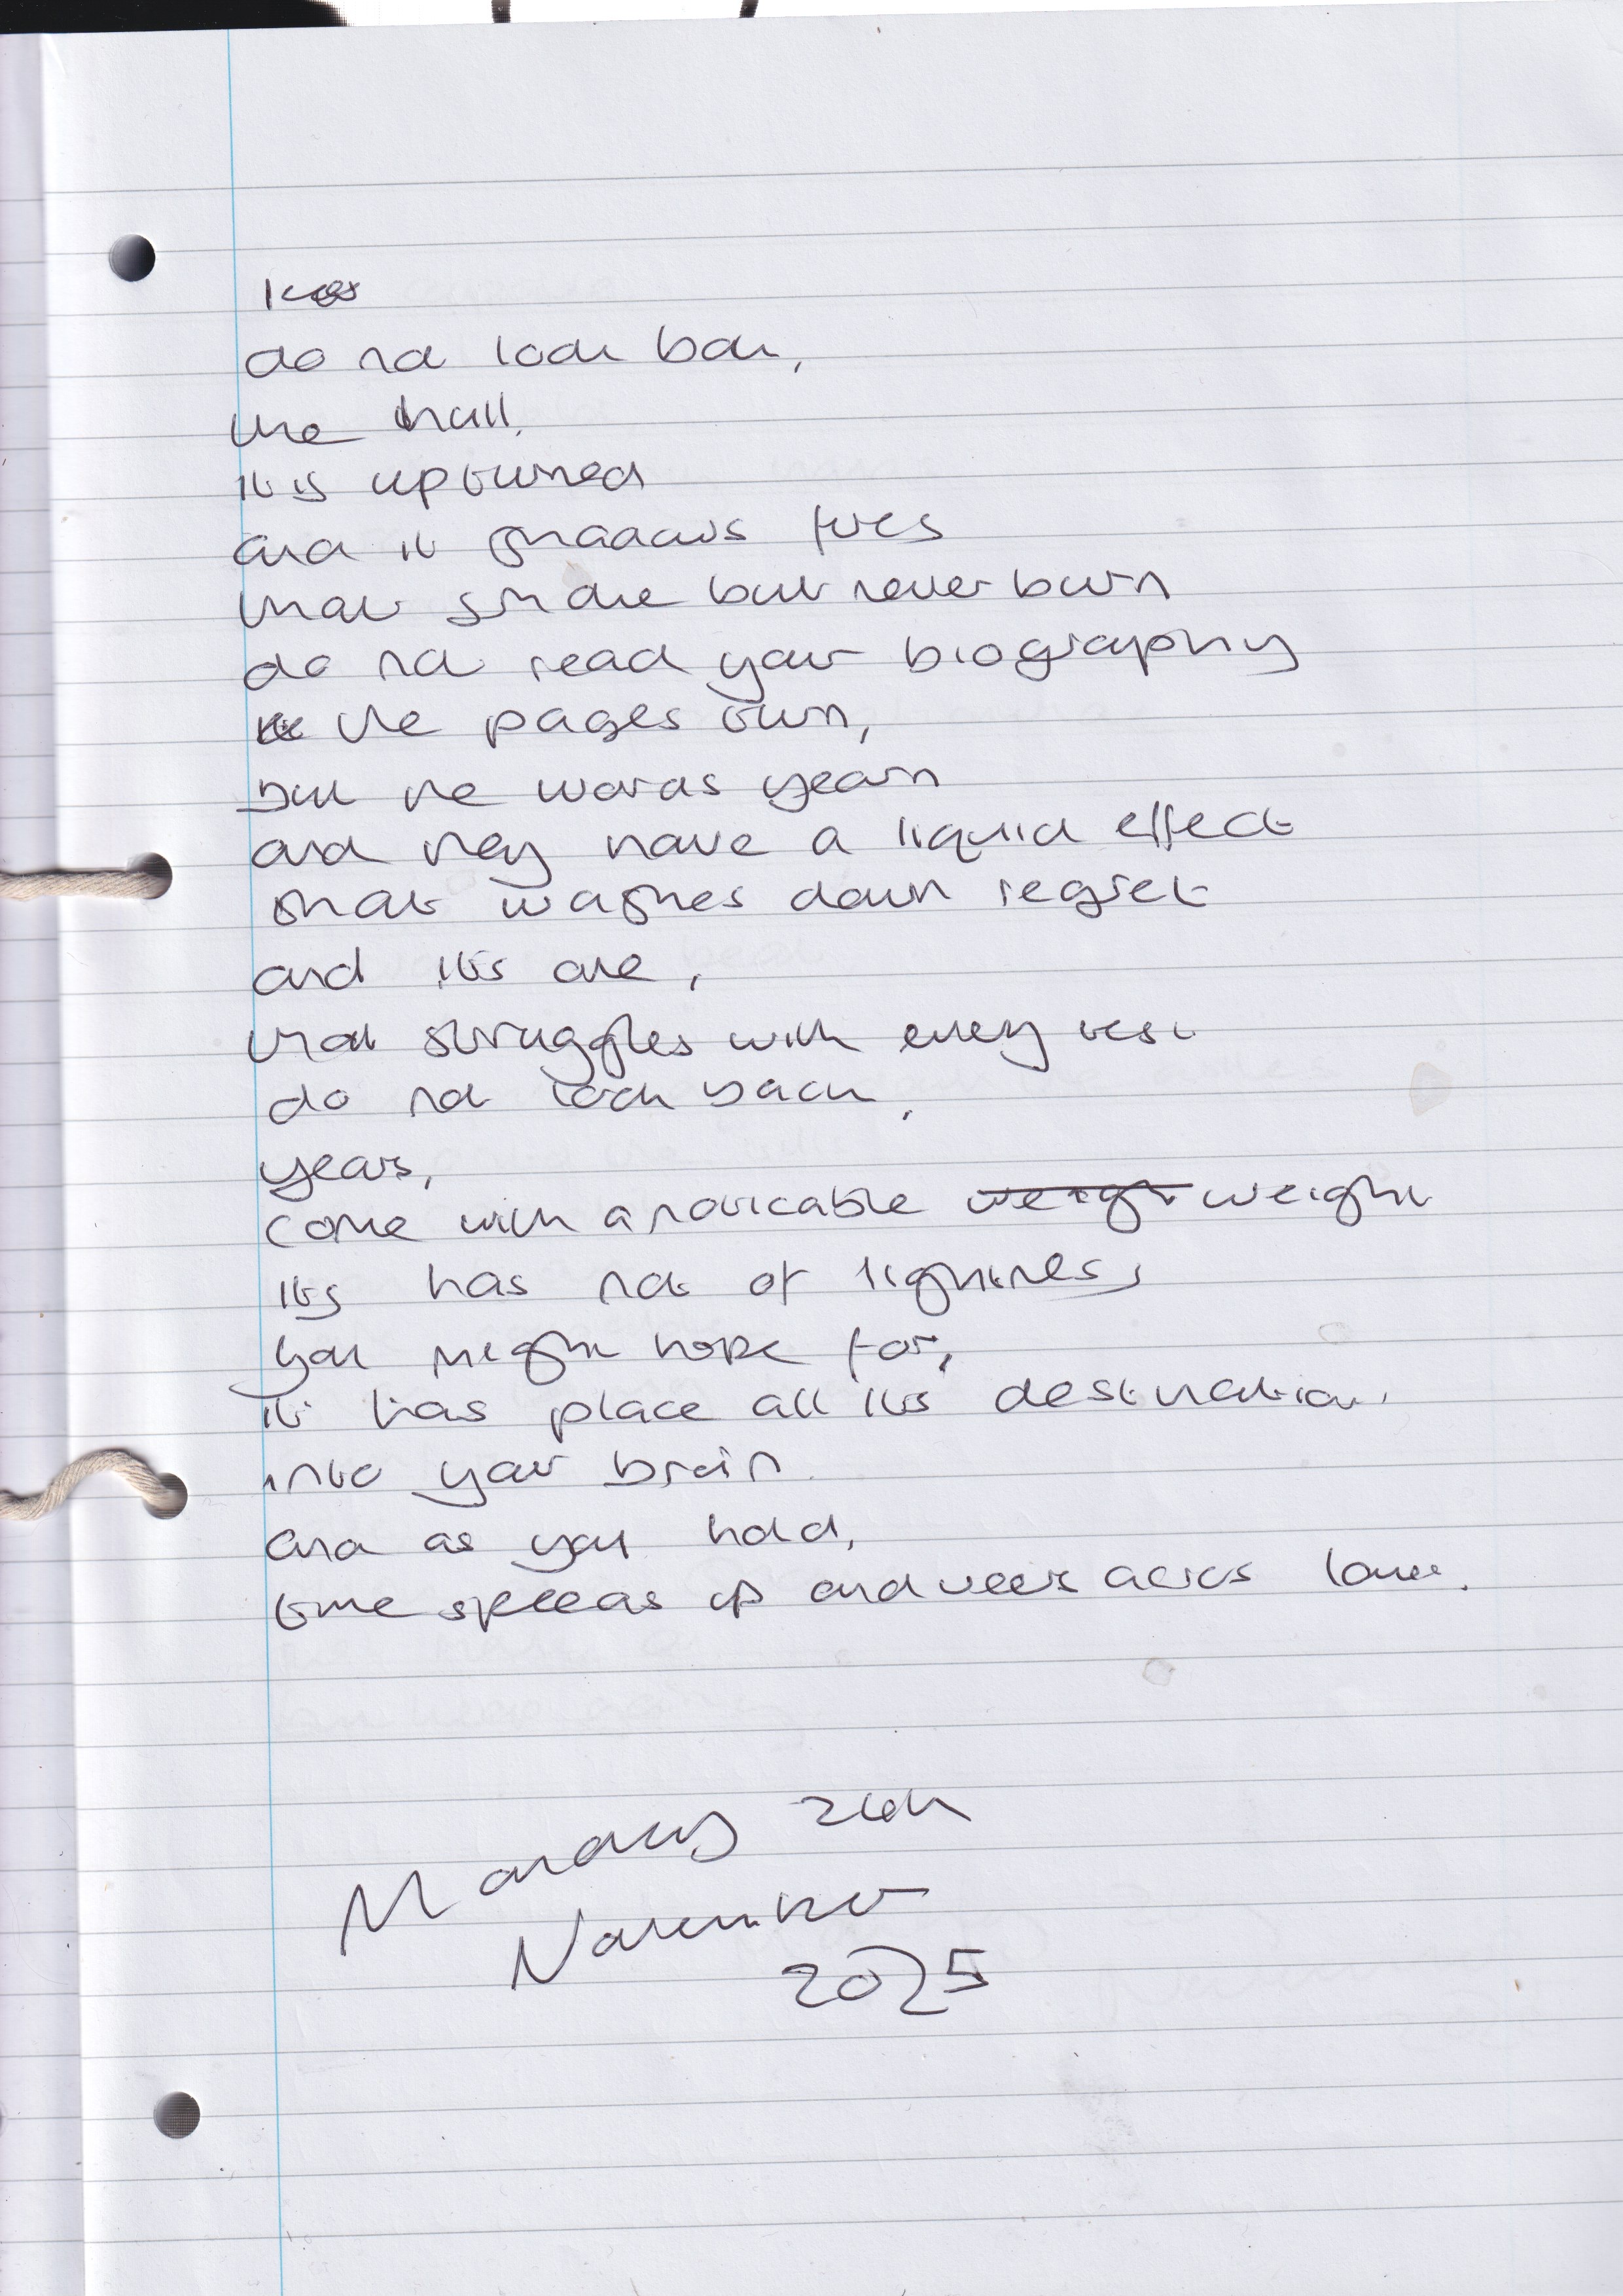 do not look back,
the hall,
it is upturned
and it shadows fires
that smoke but never burn
do not read your biography
the pages turn,
but the words yearn
and they have a liquid effect
that washes down regret
and its one,
that struggles with every test
do not look back,
years,
come with a noticable weigh weight
its has not of lightness,
you might hope for,
it has place all its destination
into your brain.
and as you hold,
time speeds up and veers across lanes.
Monday 24th
November
2025